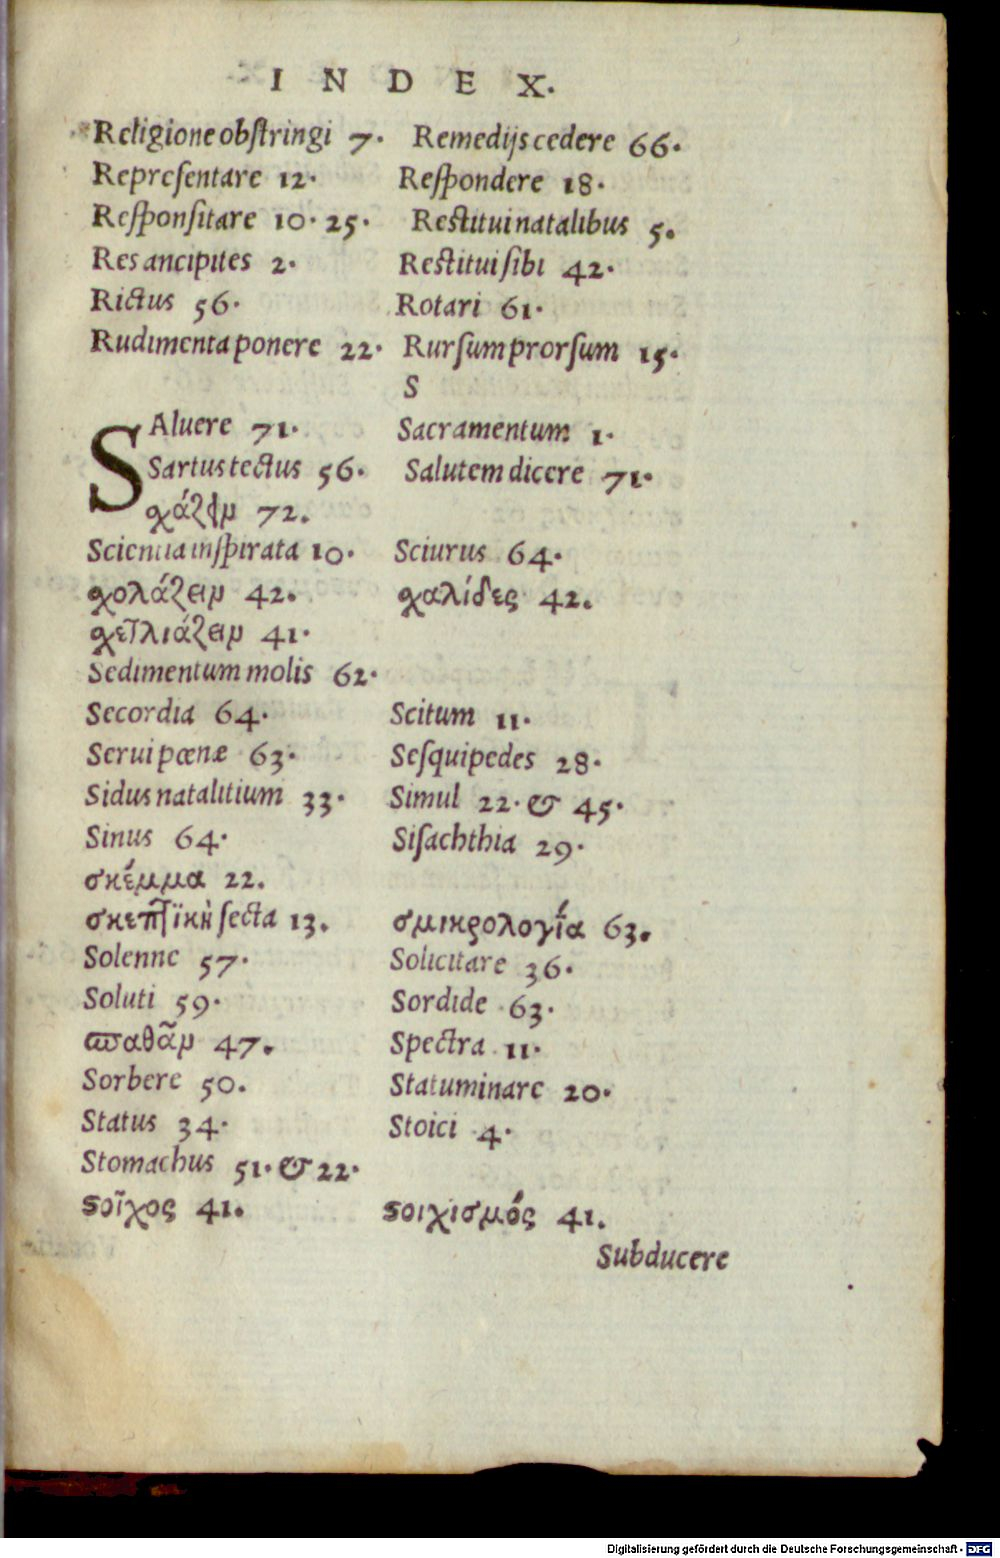 INDEX.
Religione obstringi 7. Remedijs cedere 66.
Repreſentare 12. Reſpondere 18.
Reſponſitare 10. 25. Restitui natalibus 5.
Res ancipites 2. Restitui ſibi 42.
Rictus 56. Rotari 61.
Rudimenta ponere 22. Rurſum prorſum 15.
S
SAluere 71. Sacramentum 1.
Sartus tectus 56. Salutem dicere 71.
σχάζειν 72.
Scientia inſpirata 10. Sciurus 64.
σχολάζειν 42. σχαλίδες 42.
σχετλιάζειν 41.
Sedimentum molis 62.
Secordia 64. Scitum 11.
Serui pœnæ 63. Seſquipedes 28.
Sidus natalitium 33. Simul 22. & 45.
Sinus 64. Siſachthia 29.
σκέμμα 22.
σκεπτϊκὴ ſecta 13. σμικρολογία 63.
Solenne 57. Solicitare 36.
Soluti 59. Sordide 63.
σπαθᾶν 47. Spectra 11.
Sorbere 50. Statuminare 20.
Status 34. Stoici 4.
Stomachus 51. & 22.
ϛοῖχος 41. ϛοιχισμός 41.
Subducere
Digitalisierung gefördert durch die Deutsche Forschungsgemeinschaft - DFG